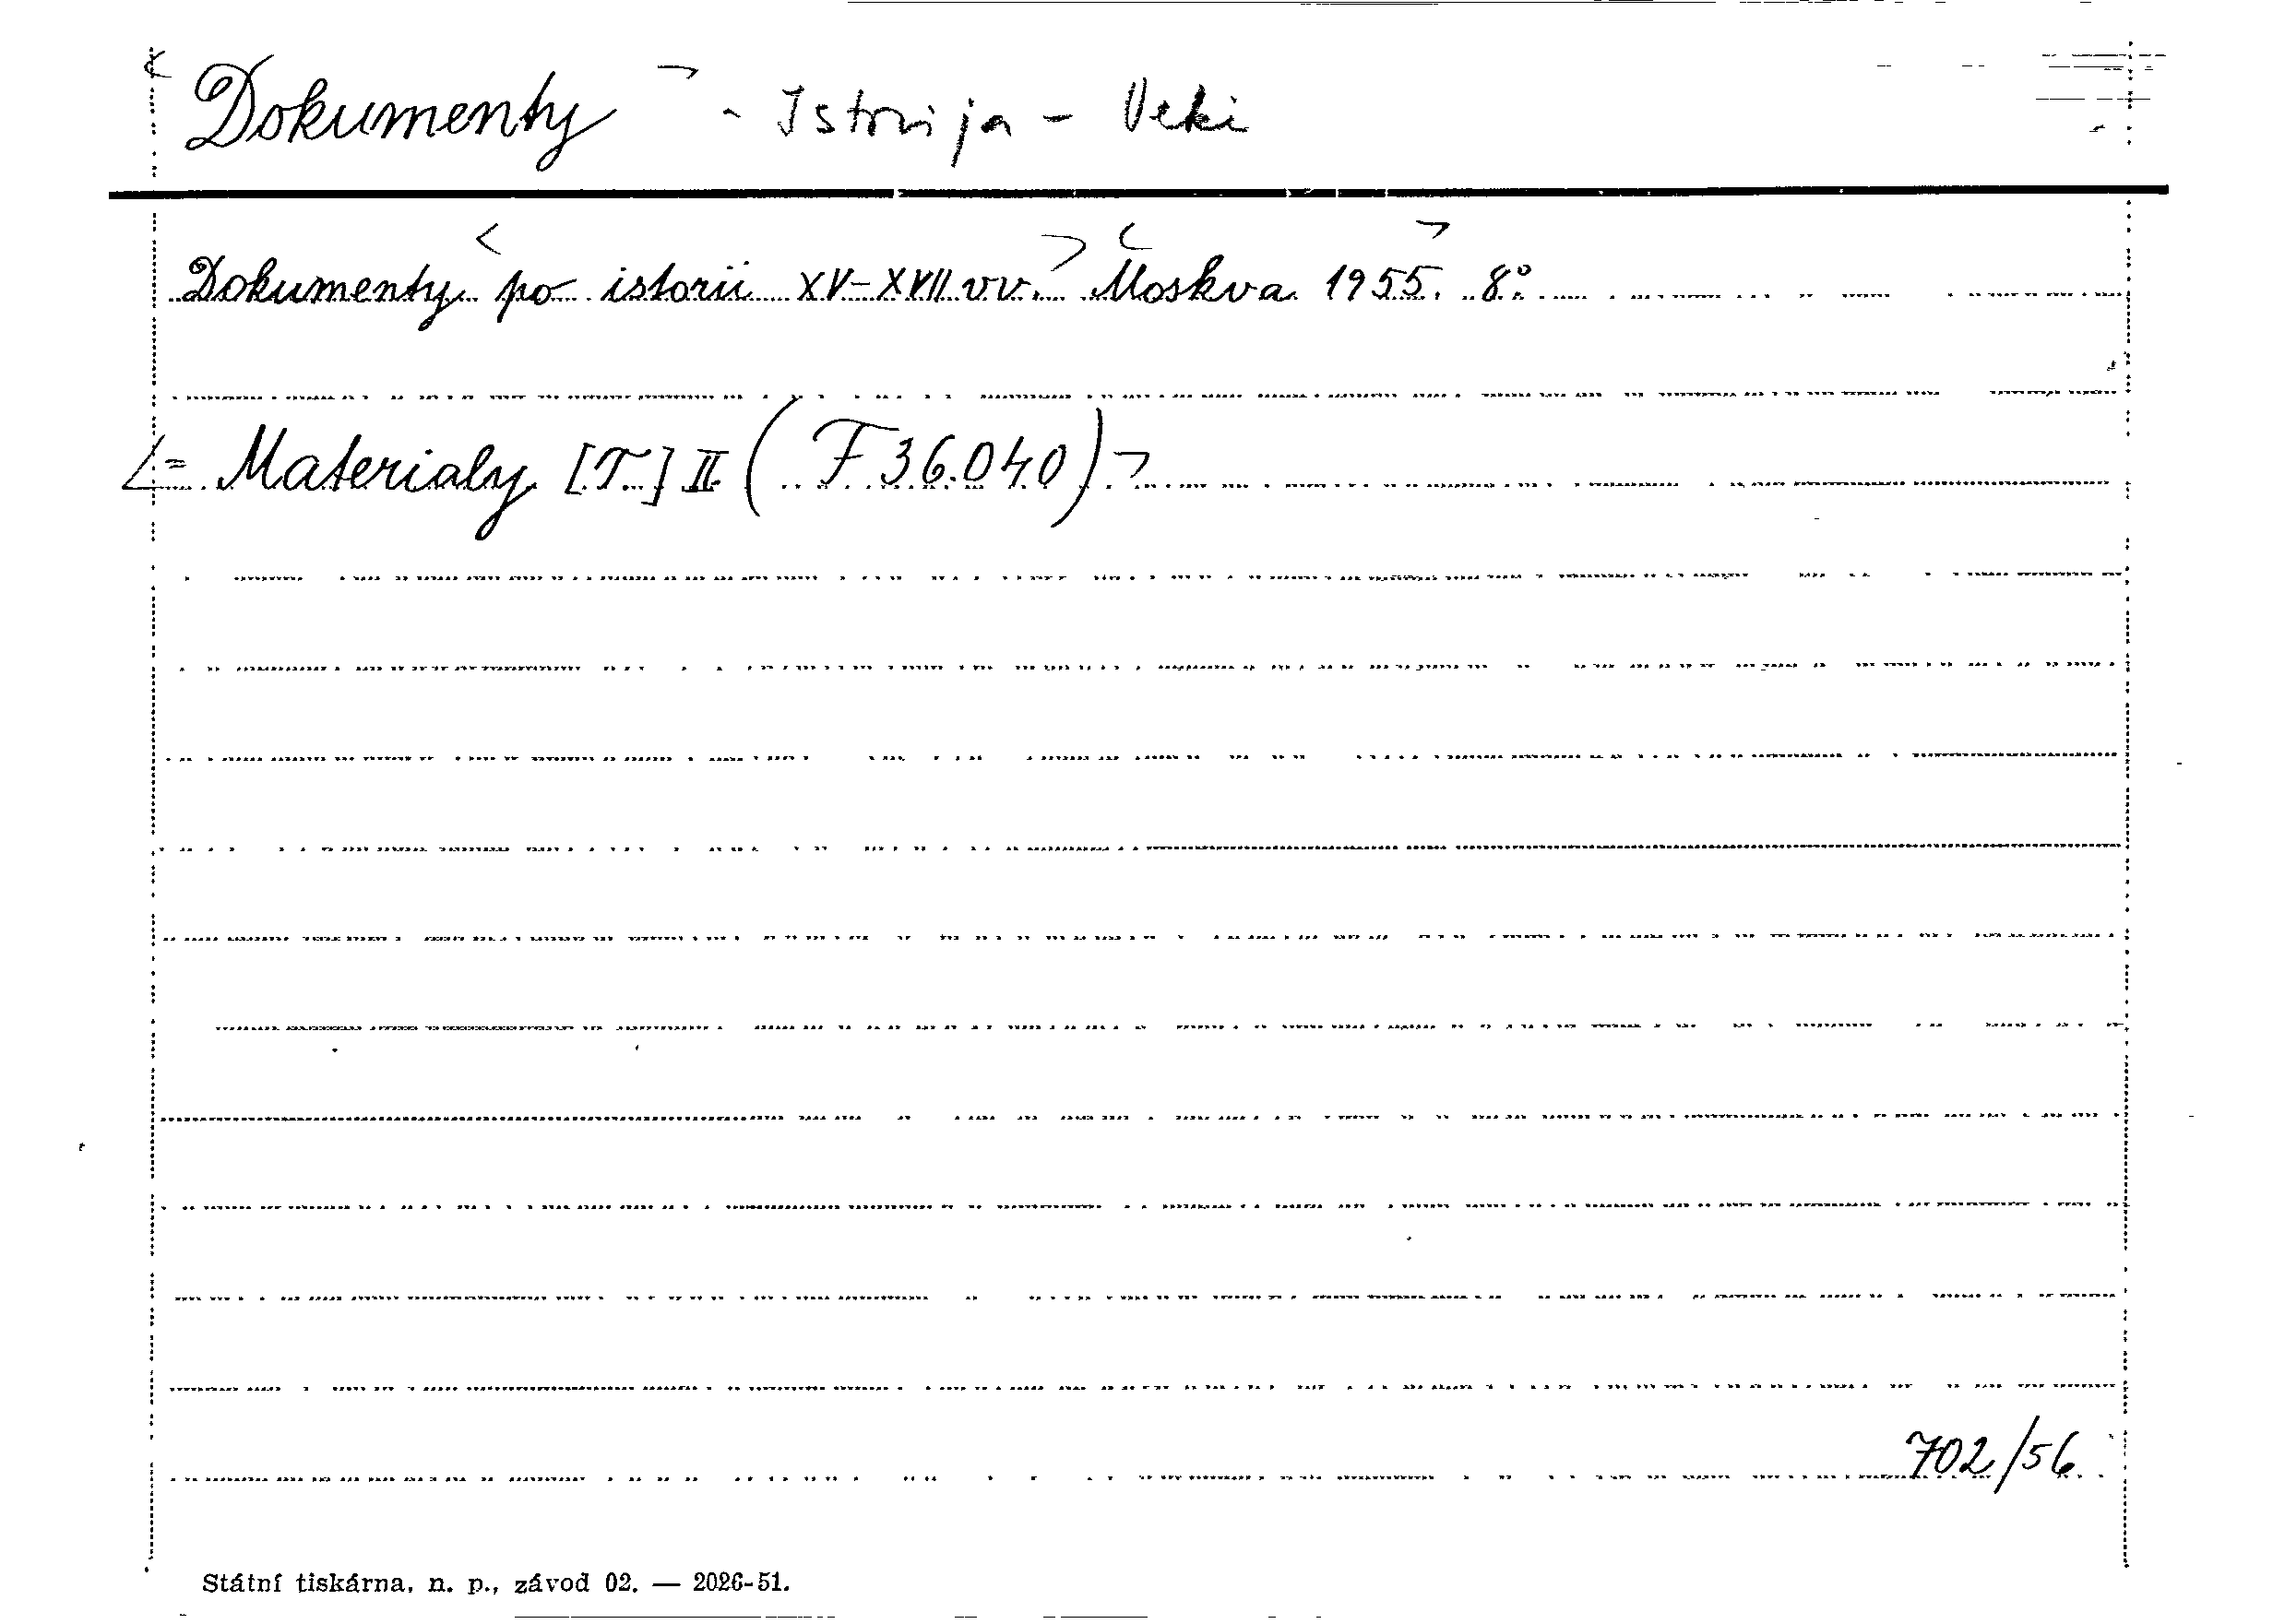 <Dokumenty> - Istorija - Veki
Dokumenty <po istorii XV-XVII vv.> <Moskva 1955.> 8°
<= Materialy [T.] II (F 36.040)>
702/56
Státní tiskárna, n. p., závod 02. — 2026-51.